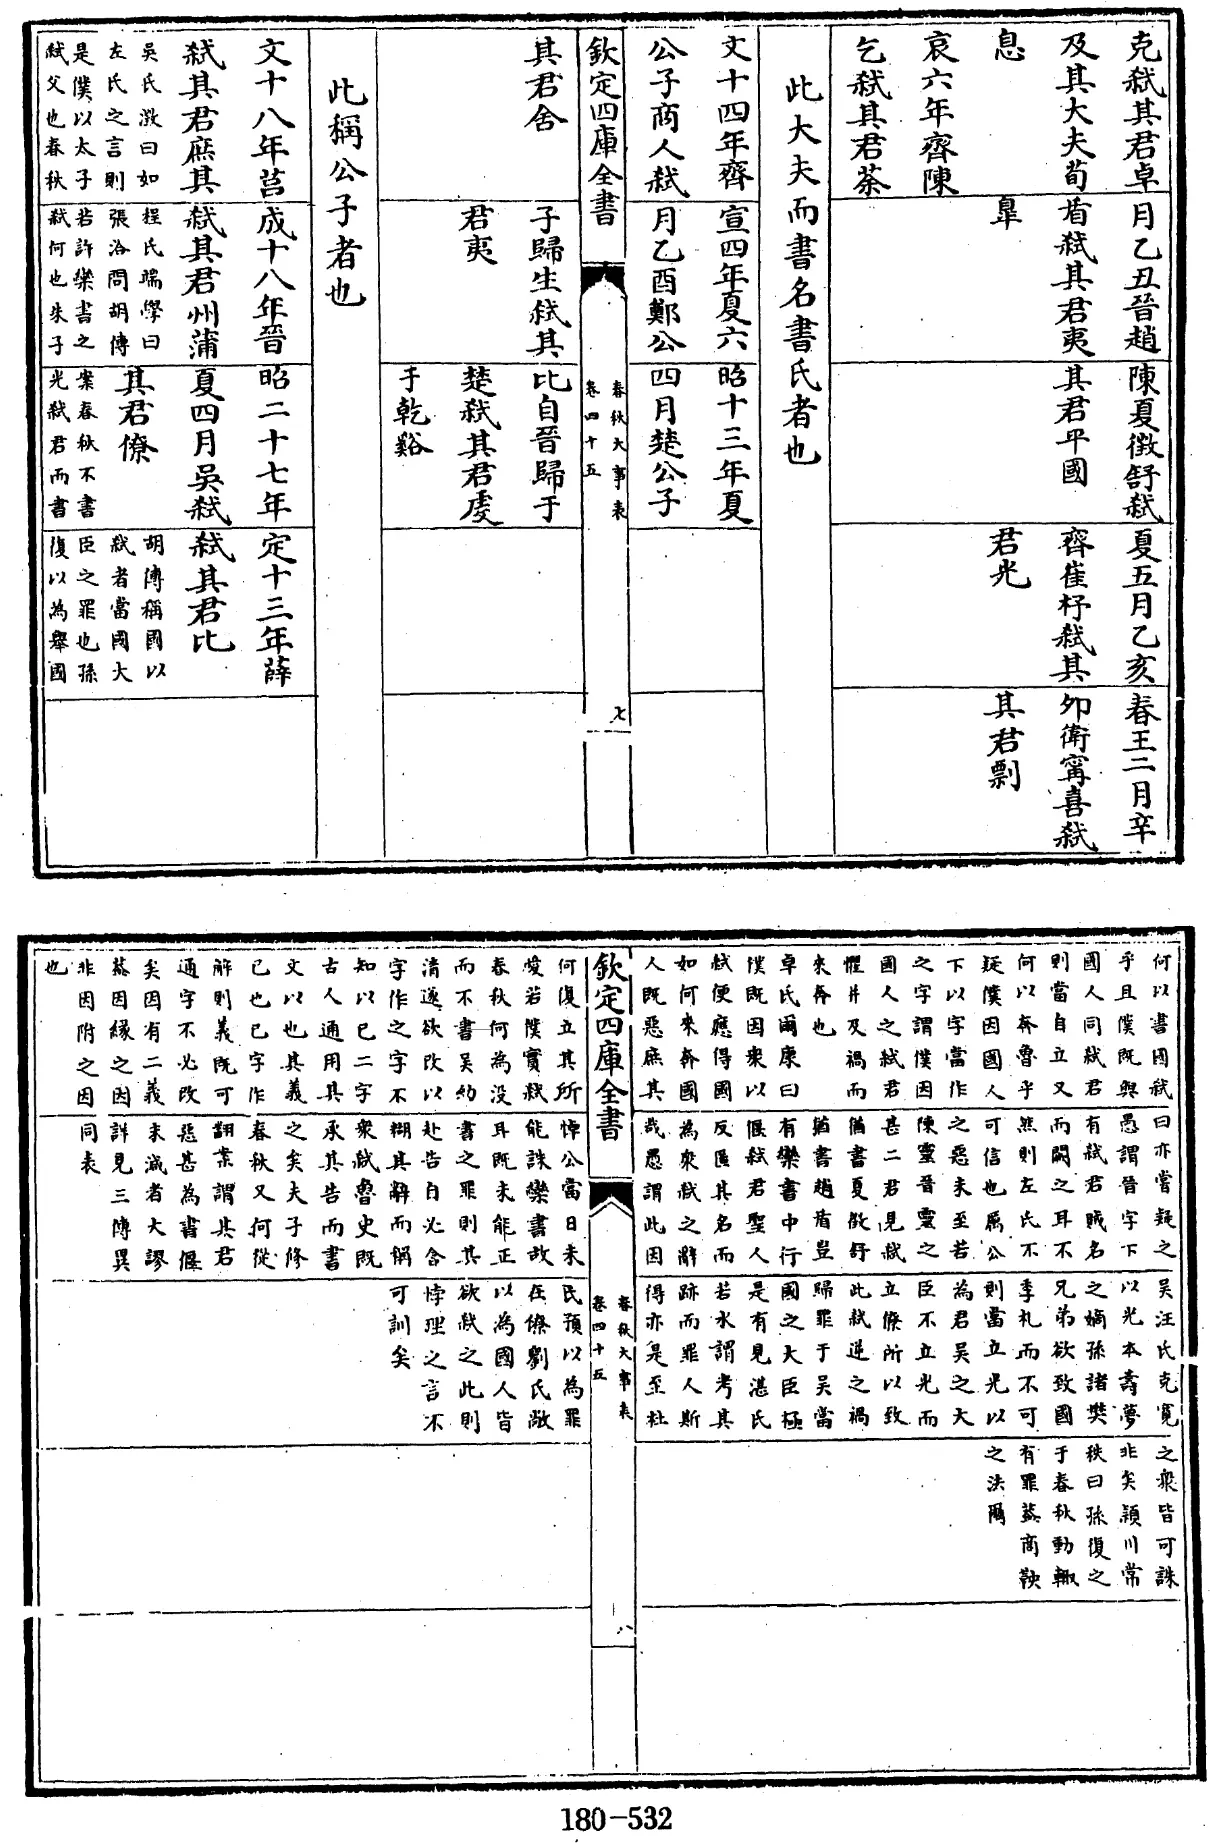 克弑其君卓
及其大夫荀
息
哀六年齊陳
乞弑其君荼
月乙丑晉趙
盾弑其君夷
臯
陳夏徵舒弑
其君平國
夏五月乙亥
齊崔杼弑其
君光
春王二月辛
卯衛甯喜弑
其君剽
此大夫而書名書氏者也
文十四年齊
公子商人弑
宣四年夏六
月乙酉鄭公
昭十三年夏
四月楚公子
欽定四庫全書
春秋大事表
卷四十五
七
其君舍
子歸生弑其
君夷
比自晉歸于
楚弑其君虔
于乾谿
此稱公子者也
文十八年莒
弑其君庶其
吳氏澂曰如
左氏之言則
是僕以太子
弑父也春秋
成十八年晉
弑其君州蒲
程氏端學曰
張洽問胡傳
若許欒書之
弑何也朱子
昭二十七年
夏四月吳弑
其君僚
案春秋不書
光弑君而書
定十三年薛
弑其君比
胡傳稱國以
弑者當國大
臣之罪也孫
復以為舉國
何以書國弑
乎且僕既與
國人同弑君
則當自立又
何以奔魯乎
疑僕因國人
下以字當作
之字謂僕因
國人之弑君
懼并及禍而
來奔也
卓氏爾康曰
僕既因衆以
弑便應得國
如何來奔國
人既惡庶其
曰亦嘗疑之
愚謂晉字下
有弑君賊名
而闕之耳不
然則左氏不
可信也厲公
之惡未至若
陳靈晉靈之
甚二君見弑
猶書夏徵舒
猶書趙盾豈
有欒書中行
偃弑君聖人
反匿其名而
為衆弑之辭
哉愚謂此因
吳汪氏克寛
以光本壽夢
之嫡孫諸樊
兄弟欲致國
季札而不可
則當立光以
為君吳之大
臣不立光而
立僚所以致
此弑逆之禍
歸罪于吳當
國之大臣極
是有見湛氏
若水謂考其
跡而罪人斯
得亦是至杜
之衆皆可誅
非矣潁川常
秩曰孫復之
于春秋動輒
有罪蓋商鞅
之法爾
欽定四庫全書
春秋大事表
卷四十五
八
何復立其所
愛若僕實弑
春秋何為没
而不書吳約
清遂欲改以
字作之字不
知以已二字
古人通用其
文以也其義
已也已字作
解則義既可
通字不必改
矣因有二義
蓋因緣之因
非因附之因
也
悼公當日未
能誅欒書故
耳既未能正
書之罪則其
赴告自必含
糊其辭而稱
衆弑魯史既
承其告而書
之矣夫子修
春秋又何從
翻案謂其君
惡甚為書偃
末減者大謬
詳見三傳異
同表
氏預以為罪
在僚劉氏敞
以為國人皆
欲弑之此則
悖理之言不
可訓矣
180-532